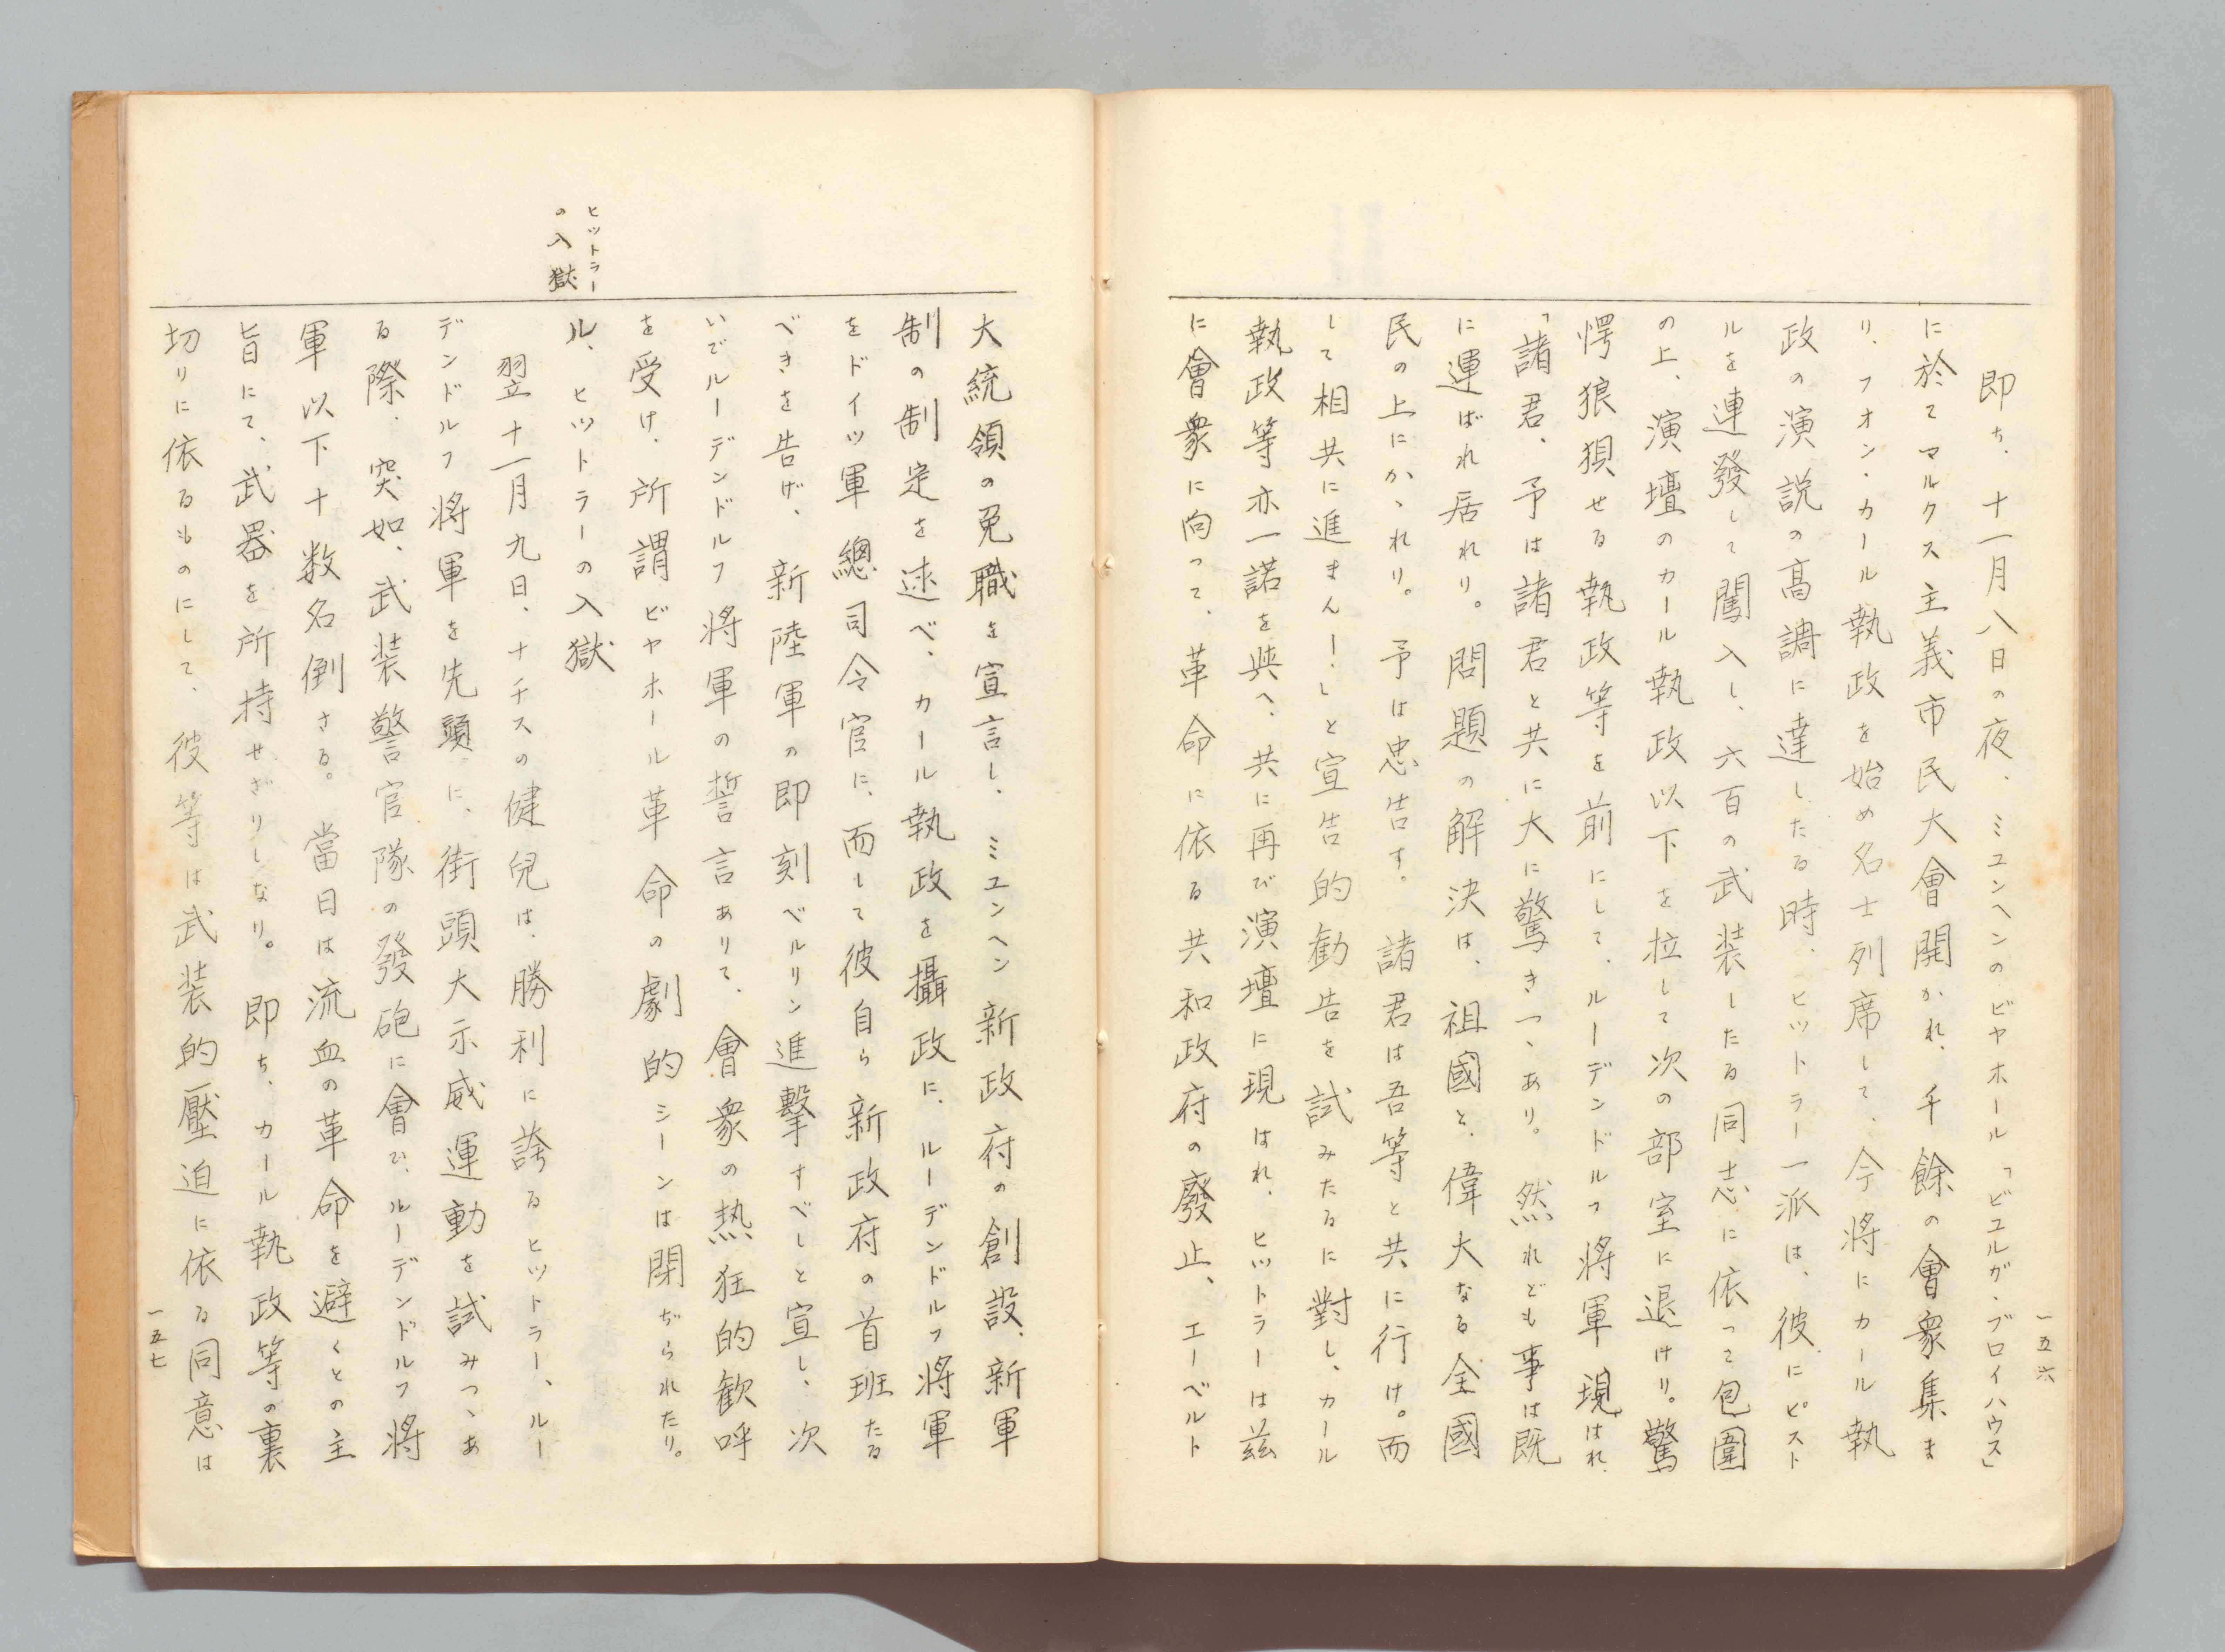 一五六
即ち、十一月八日の夜、ミュンヘンのビヤホール「ビュルガ・ブロイハウス」
に於てマルクス主義市民大會開かれ、千餘の會衆集ま
り、フオン・カール執政を始め名士列席して、今將にカール執
政の演説の高調に達したる時、ヒットラー一派は、彼にピスト
ルを連發して闖入し、六百の武装したる同志に依って包圍
の上、演壇のカール執政以下を拉して次の部室に退けり。驚
愕狼狽せる執政等を前にして、ルーデンドルフ將軍現はれ、
「諸君、予は諸君と共に大に驚きつゝあり。然れども事は既
に運ばれ居れり。問題の解決は、祖國と、偉大なる全國
民の上にかゝれり。予は忠告す。諸君は吾等と共に行け。而
して相共に進まん！」と宣告的勸告を試みたるに對し、カール
執政等亦一諾を與へ、共に再び演壇に現はれ、ヒットラーは玆
に會衆に向って、革命に依る共和政府の廢止、エーベルト
大統領の免職を宣言し、ミュンヘン新政府の創設、新軍
制の制定を述べ、カール執政を攝政に、ルーデンドルフ將軍
をドイツ軍總司令官に、而して彼自ら新政府の首班たる
べきを告げ、新陸軍の即刻ベルリン進擊すべしと宣し、次
いでルーデンドルフ將軍の誓言ありて、會衆の热狂的歓呼
を受け、所謂ビヤホール革命の劇的シーンは閉ぢられたり。
ヒットラー
の入獄
ル、ヒットラーの入獄
翌十一月九日、ナチスの健兒は、勝利に誇るヒットラー、ルー
デンドルフ將軍を先頭に、街頭大示威運動を試みつゝあ
る際、突如、武装警官隊の發砲に會ひ、ルーデンドルフ將
軍以下十数名倒さる。當日は流血の革命を避くとの主
旨にて、武器を所持せざりしなり。即ち、カール執政等の裏
切りに依るものにして、彼等は武装的壓迫に依る同意は
一五七